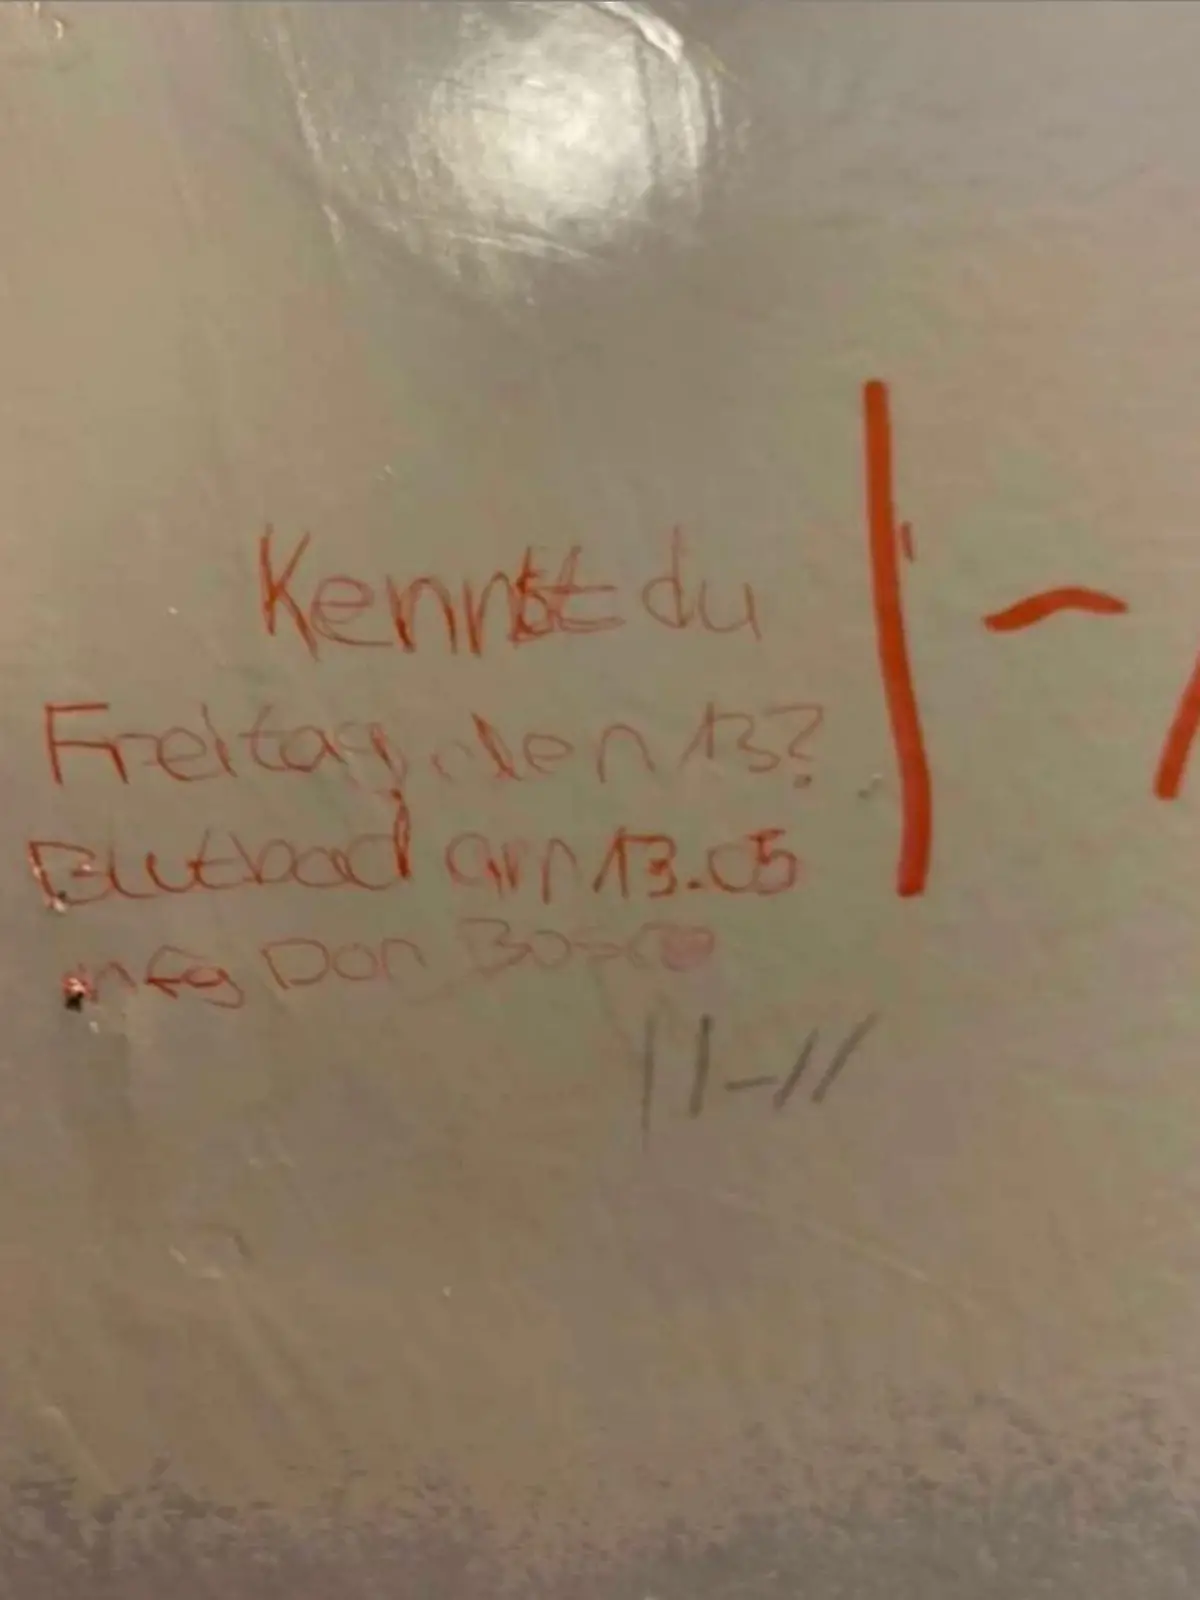 Kennst du
Freitag, den 13?
Blutbad am 13.05
mfg Don Bosco